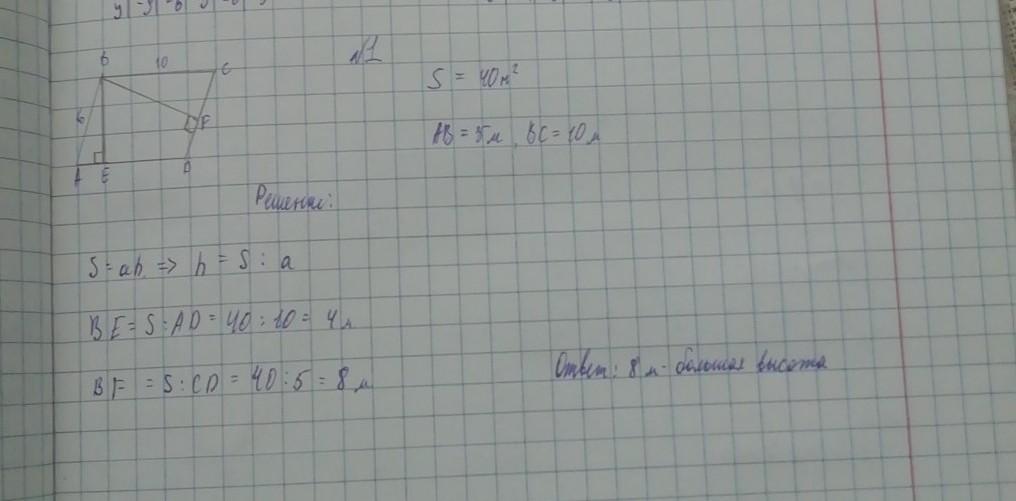 №1
B 10 C
6
F
A E D
S = 40 м²
AB = 5 м, BC = 10 м
Решение:
S = ah => h = S : a
BE = S : AD = 40 : 10 = 4 м
BF = S : CD = 40 : 5 = 8 м
Ответ: 8 м - большая высота